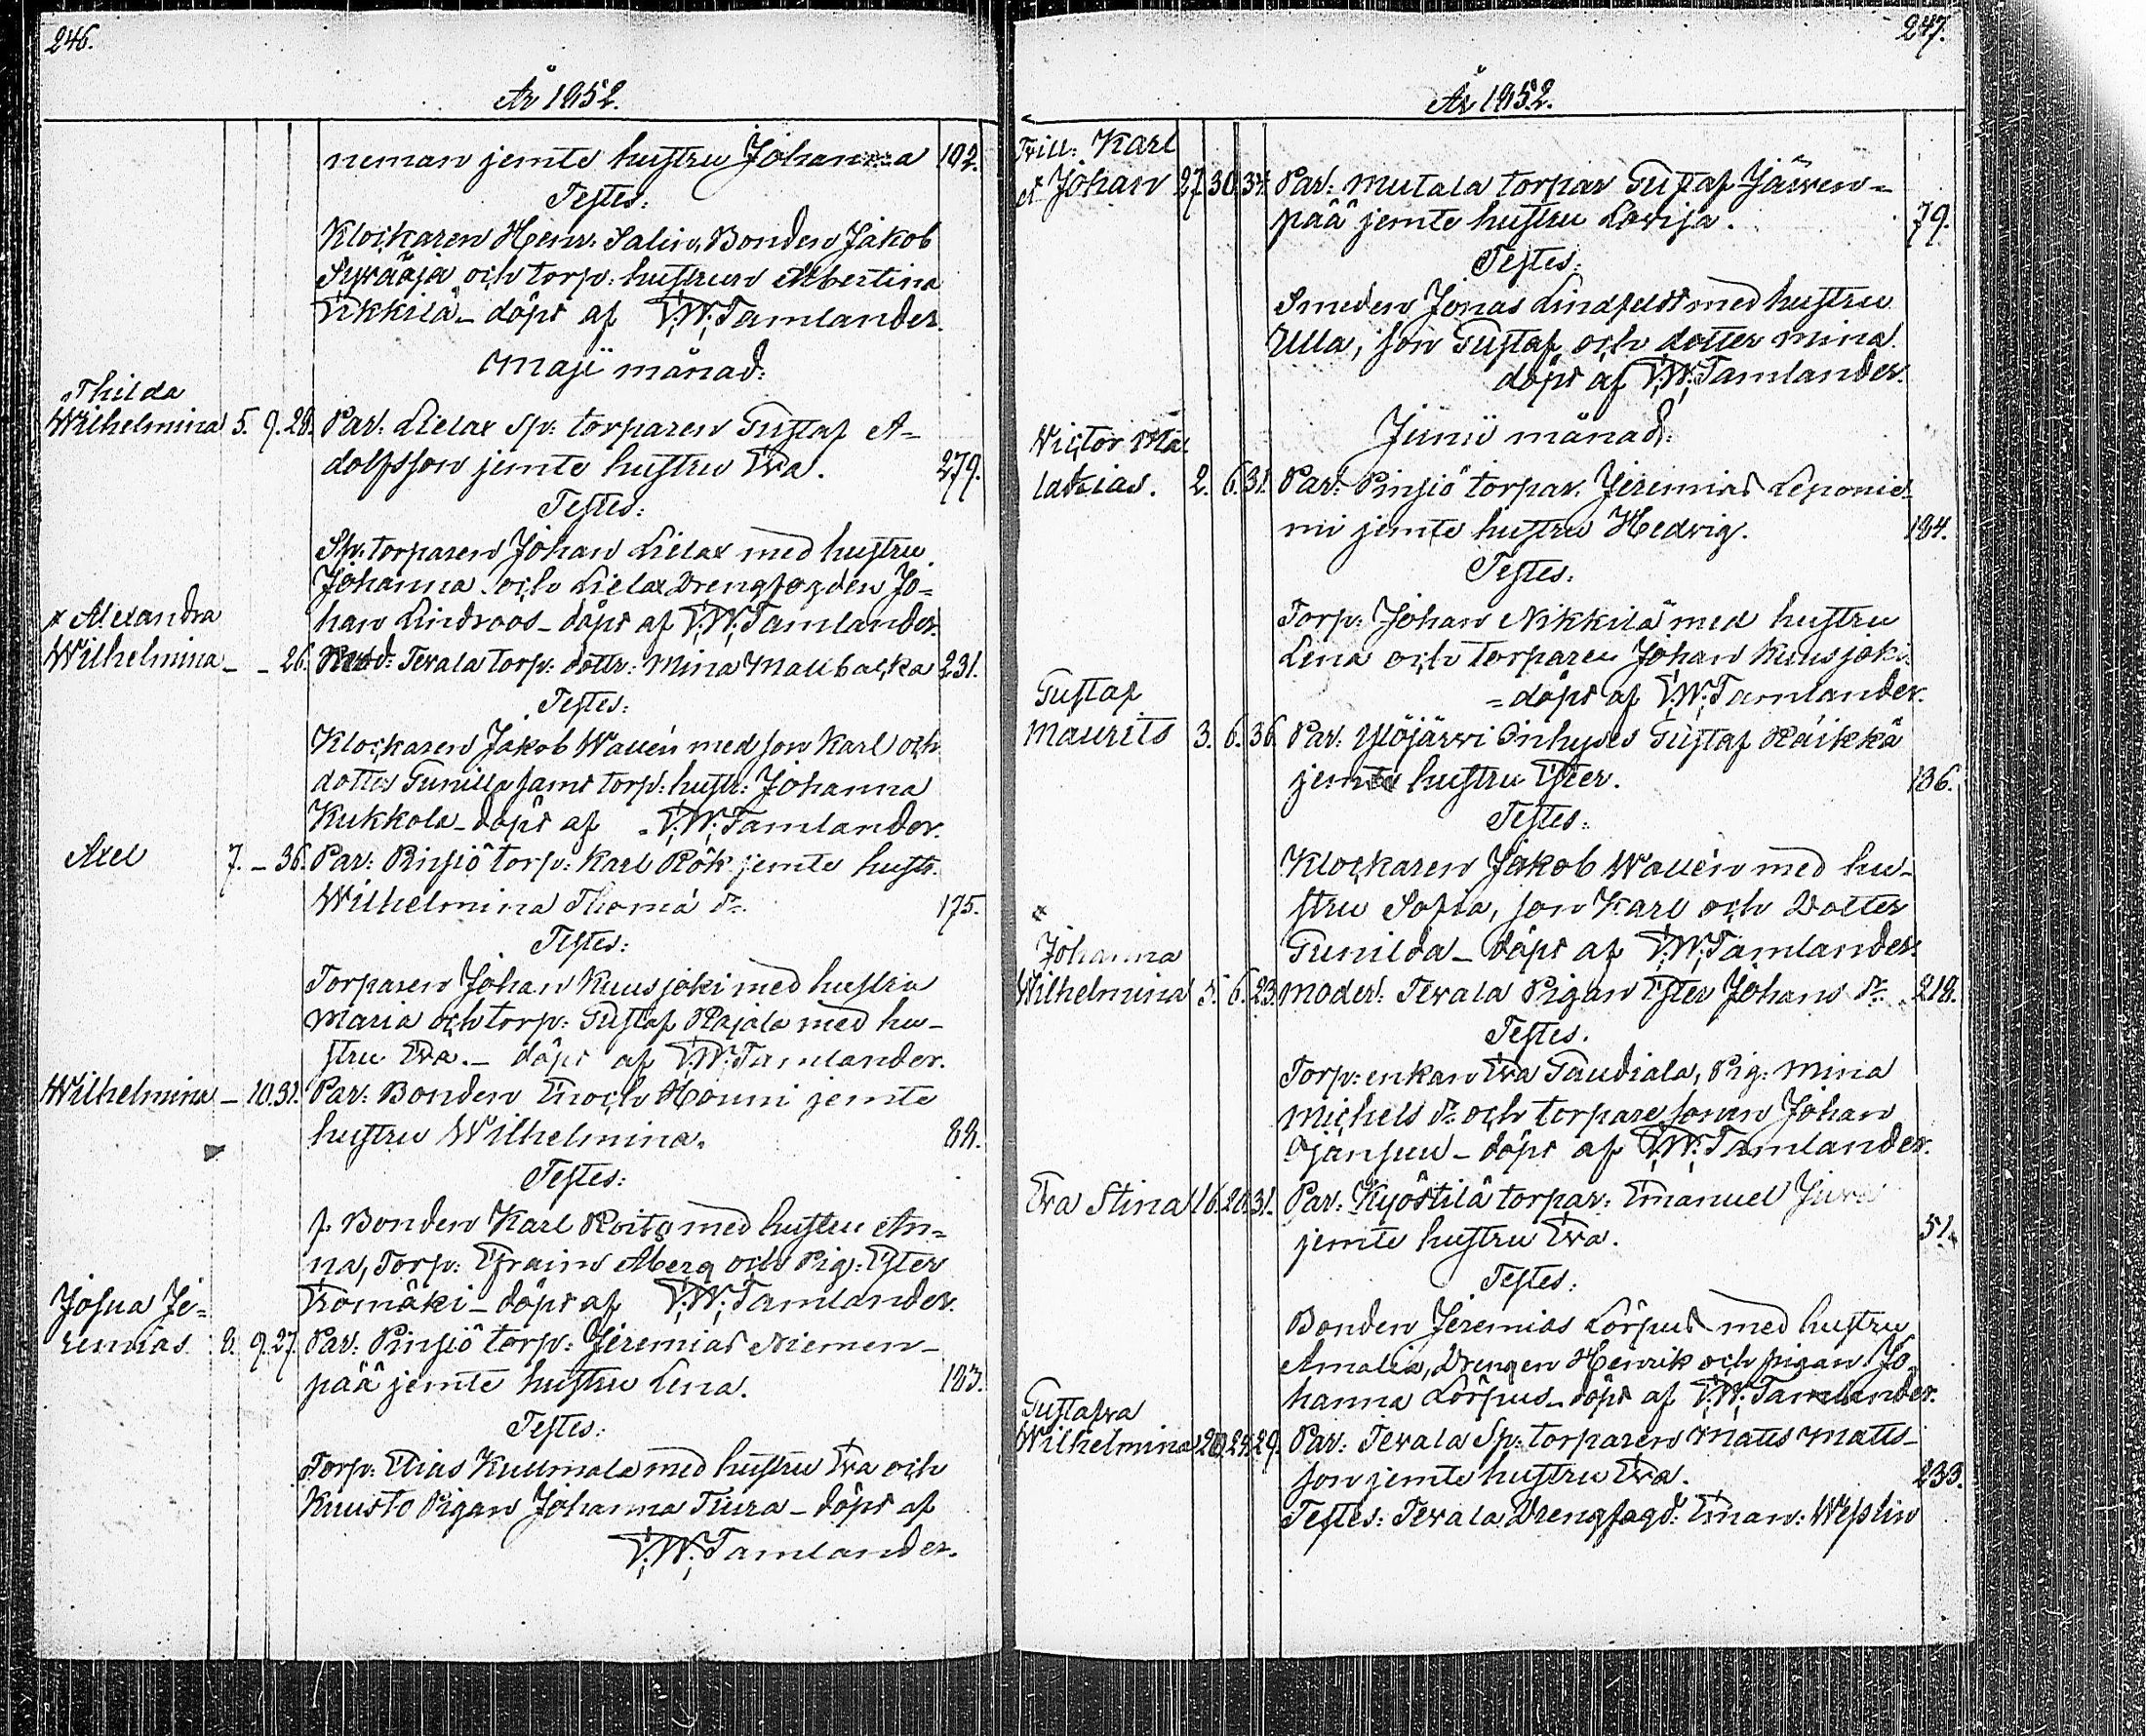 246.
År 1852.
neman jemte hustru Johanna 192.
Testes:
Klockaren Henr: Salin, Bonden Jakob
och torp: hustrun Albertina
döpt af F: W: Tamlander.
Maji månad:
Thilda
Wilhelmina 5. 9. 28. Par: Lielax Sp: torparen Gustaf A=
dolfsson jemte hustru Eva. 279.
Testes:
Sp: torparen Johan Lielax med hustru
Johanna och Lielax Drengfogden Jo=
x Alexandra han Lindroos _ döpt af F: W: Tamlander.
Wilhelmina _ _ 26. Mod: Tevala torp: dottr: Mina Mallbacka 231.
Testes:
Klockaren Jakob Wallén med son Karl och
dotter Gunilla samt torp: hustr: Johanna
Kukkola _ döpt af F: W: Tamlander.
Axel 7. _ 36. Par: Pinsiö torp: Karl Rök jemte hustr.
Wilhelmina Thomæ dr. 175.
Testes:
Torparen Johan Kuusjoki med hustru
Maria och torp: Gustaf Rajala med hu-
stru Eva. _ döpt af F: W: Tamlander.
Wilhelmina _ 10. 31. Par: Bonden Enoch Houni jemte
hustru Wilhelmina. 88.
Testes:
f. Bonden Karl Roito med hustru An=
na, Torp: Efraim Åberg och Pig: Ester
döpt af F: W: Tamlander.
Josua Je=
remias 8. 9. 27. Par: Pinsiö torp: Jeremias Niemen-
pää jemte hustru Lena. 183.
Testes:
Torp: Elias Kullmala med hustru Eva och
Kuusto Pigan Johanna Tiura _ döpt af
F: W: Tamlander.
247.
År 1852.
Trill: Karl
et Johan 27. 30. 37. Par: Mutala torpar Gustaf Järven=
pää jemte hustru Lovisa. 79.
Testes:
Smeden Jonas Lindfeldt med hustru
Ulla, son Gustaf och dotter Mina.
döpt af F: W: Tamlander.
Junii månad:
Victor Ma-
lakias. 2. 6. 31. Par: Pinsiö torpar: Jeremias Leponie-
mi jemte hustru Hedvig. 184.
Testes:
Torp: Johan Nikkilä med hustru
Lena och torparen Johan Kuusjoki.
= döpt af F: W: Tamlander.
Gustaf
Maurits 3. 6. 36. Par: Ylöjärvi Inhyses Gustaf Räikkä
jemte hustru Ester. 136.
Testes:
Klockaren Jakob Wallén med hu-
stru Sofia, son Karl och Dotter
x Johanna Gunilda _ döpt af F: W: Tamlander.
Wilhelmina 5. 6. 23. Moder: Tevala Pigan Ester Johans dr. 218.
Testes.
Torp: enkan Eva Gaudiala, Pig: Mina
Michels dr. och torpare sonen Johan
Ojansuu _ döpt af F: W: Tamlander.
Eva Stina 16. 20. 31. Par: Kyöstilä torpar: Emanuel
jemte hustru Eva. 51.
Testes:
Bonden Jeremias Lörpus med hustru
Amalia, Drengen Henrik och pigan Jo-
hanna Lörpus _ döpt af F: W: Tamlander.
Gustafva
Wilhelmina 20. 24. 29. Par: Tevala Sp: torparen Matts Matts-
son jemte hustru Eva. 233.
Testes: Tevala Drengfogd: Eman: Wesslin